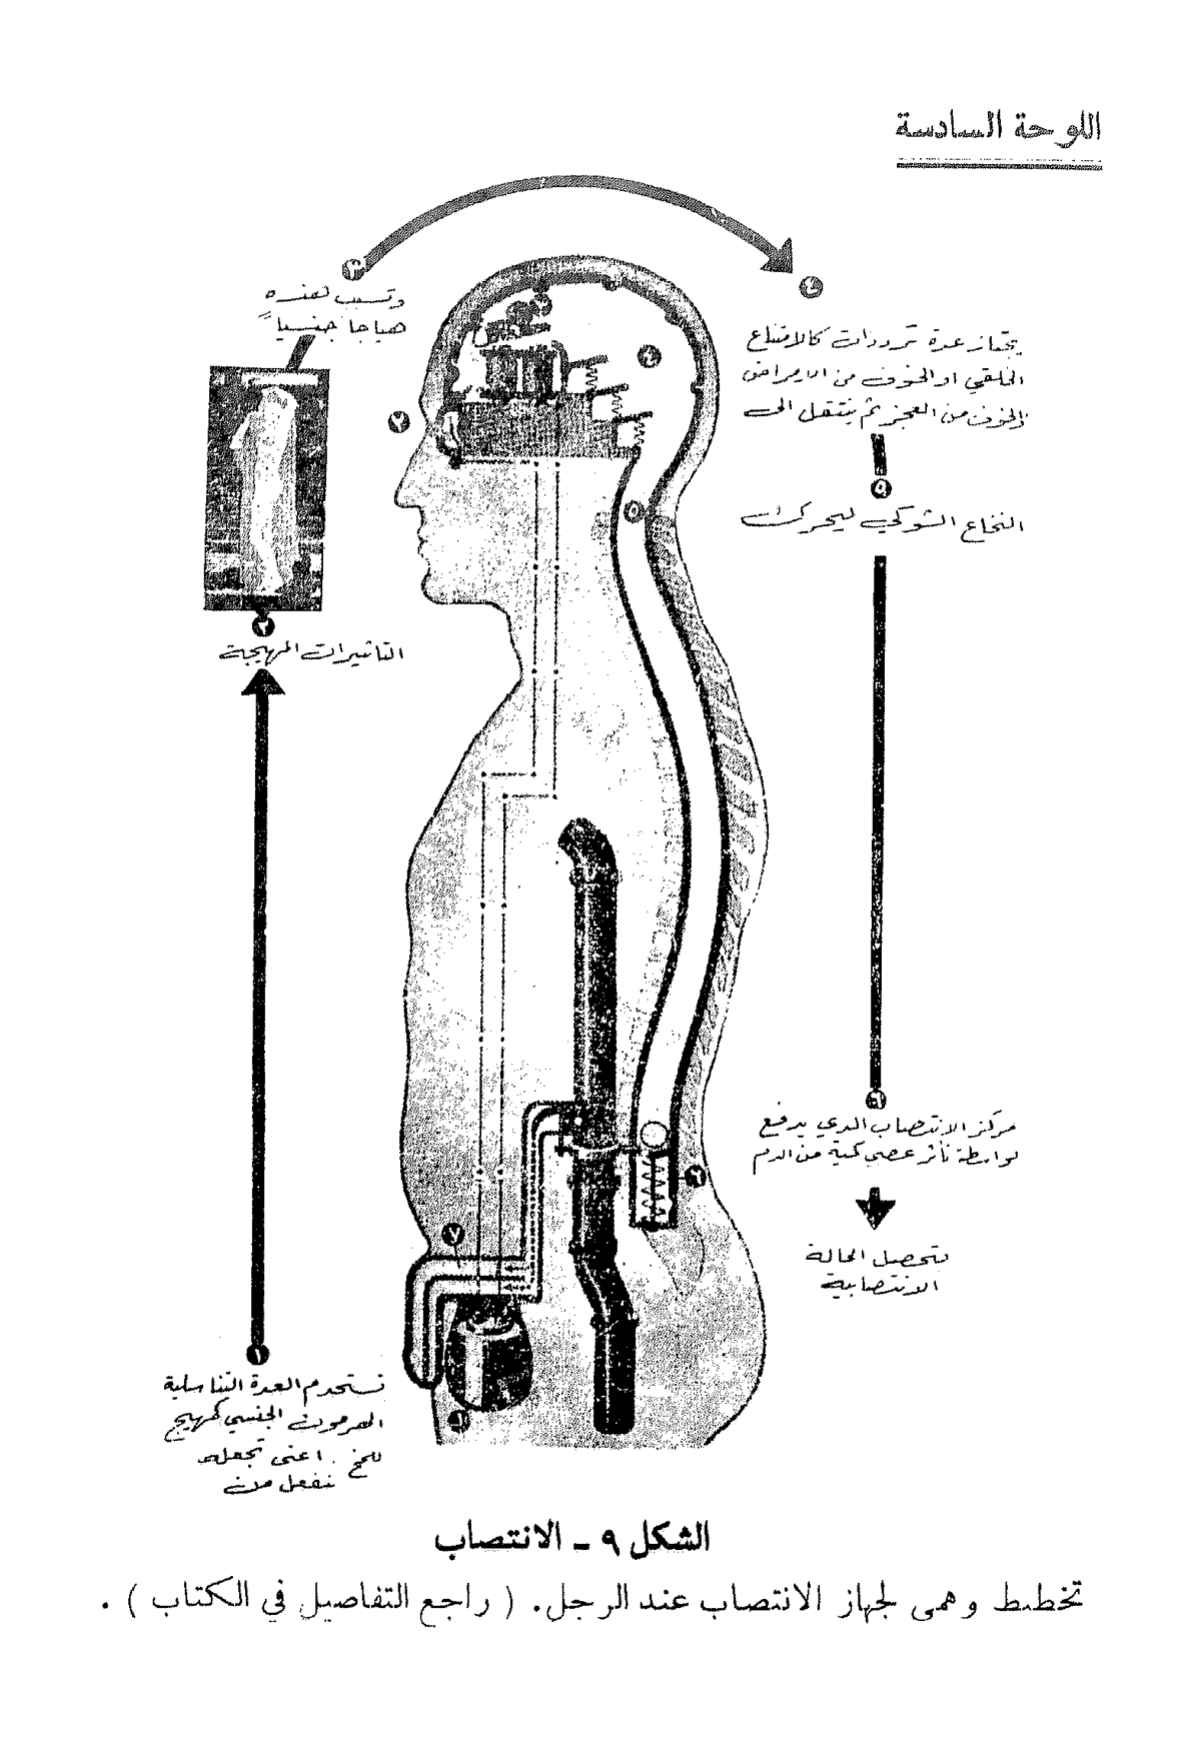 اللوحة السادسة
٣
وتسبب لهذه
هياجا جنسياً
٤
يجتاز عدة ترددات كالامتناع
الخلقي او الخوف من الامراض
والخوف من العجز ثم ينتقل الى
٥
النخاع الشوكي ليحرك
٢
التأثيرات المهيجة
٦
مركز الانتصاب الذي يدفع
بواسطة تأثر عصبي كمية من الدم
٧
لتحصل الحالة
الانتصابية
١
تستخدم الغدة التناسلية
الهرمون الجنسي كمهيج
للمخ . اعني تجعله
ينفعل من
الشكل ٩ - الانتصاب
تخطيط وهمى لجهاز الانتصاب عند الرجل. ( راجع التفاصيل في الكتاب ) .